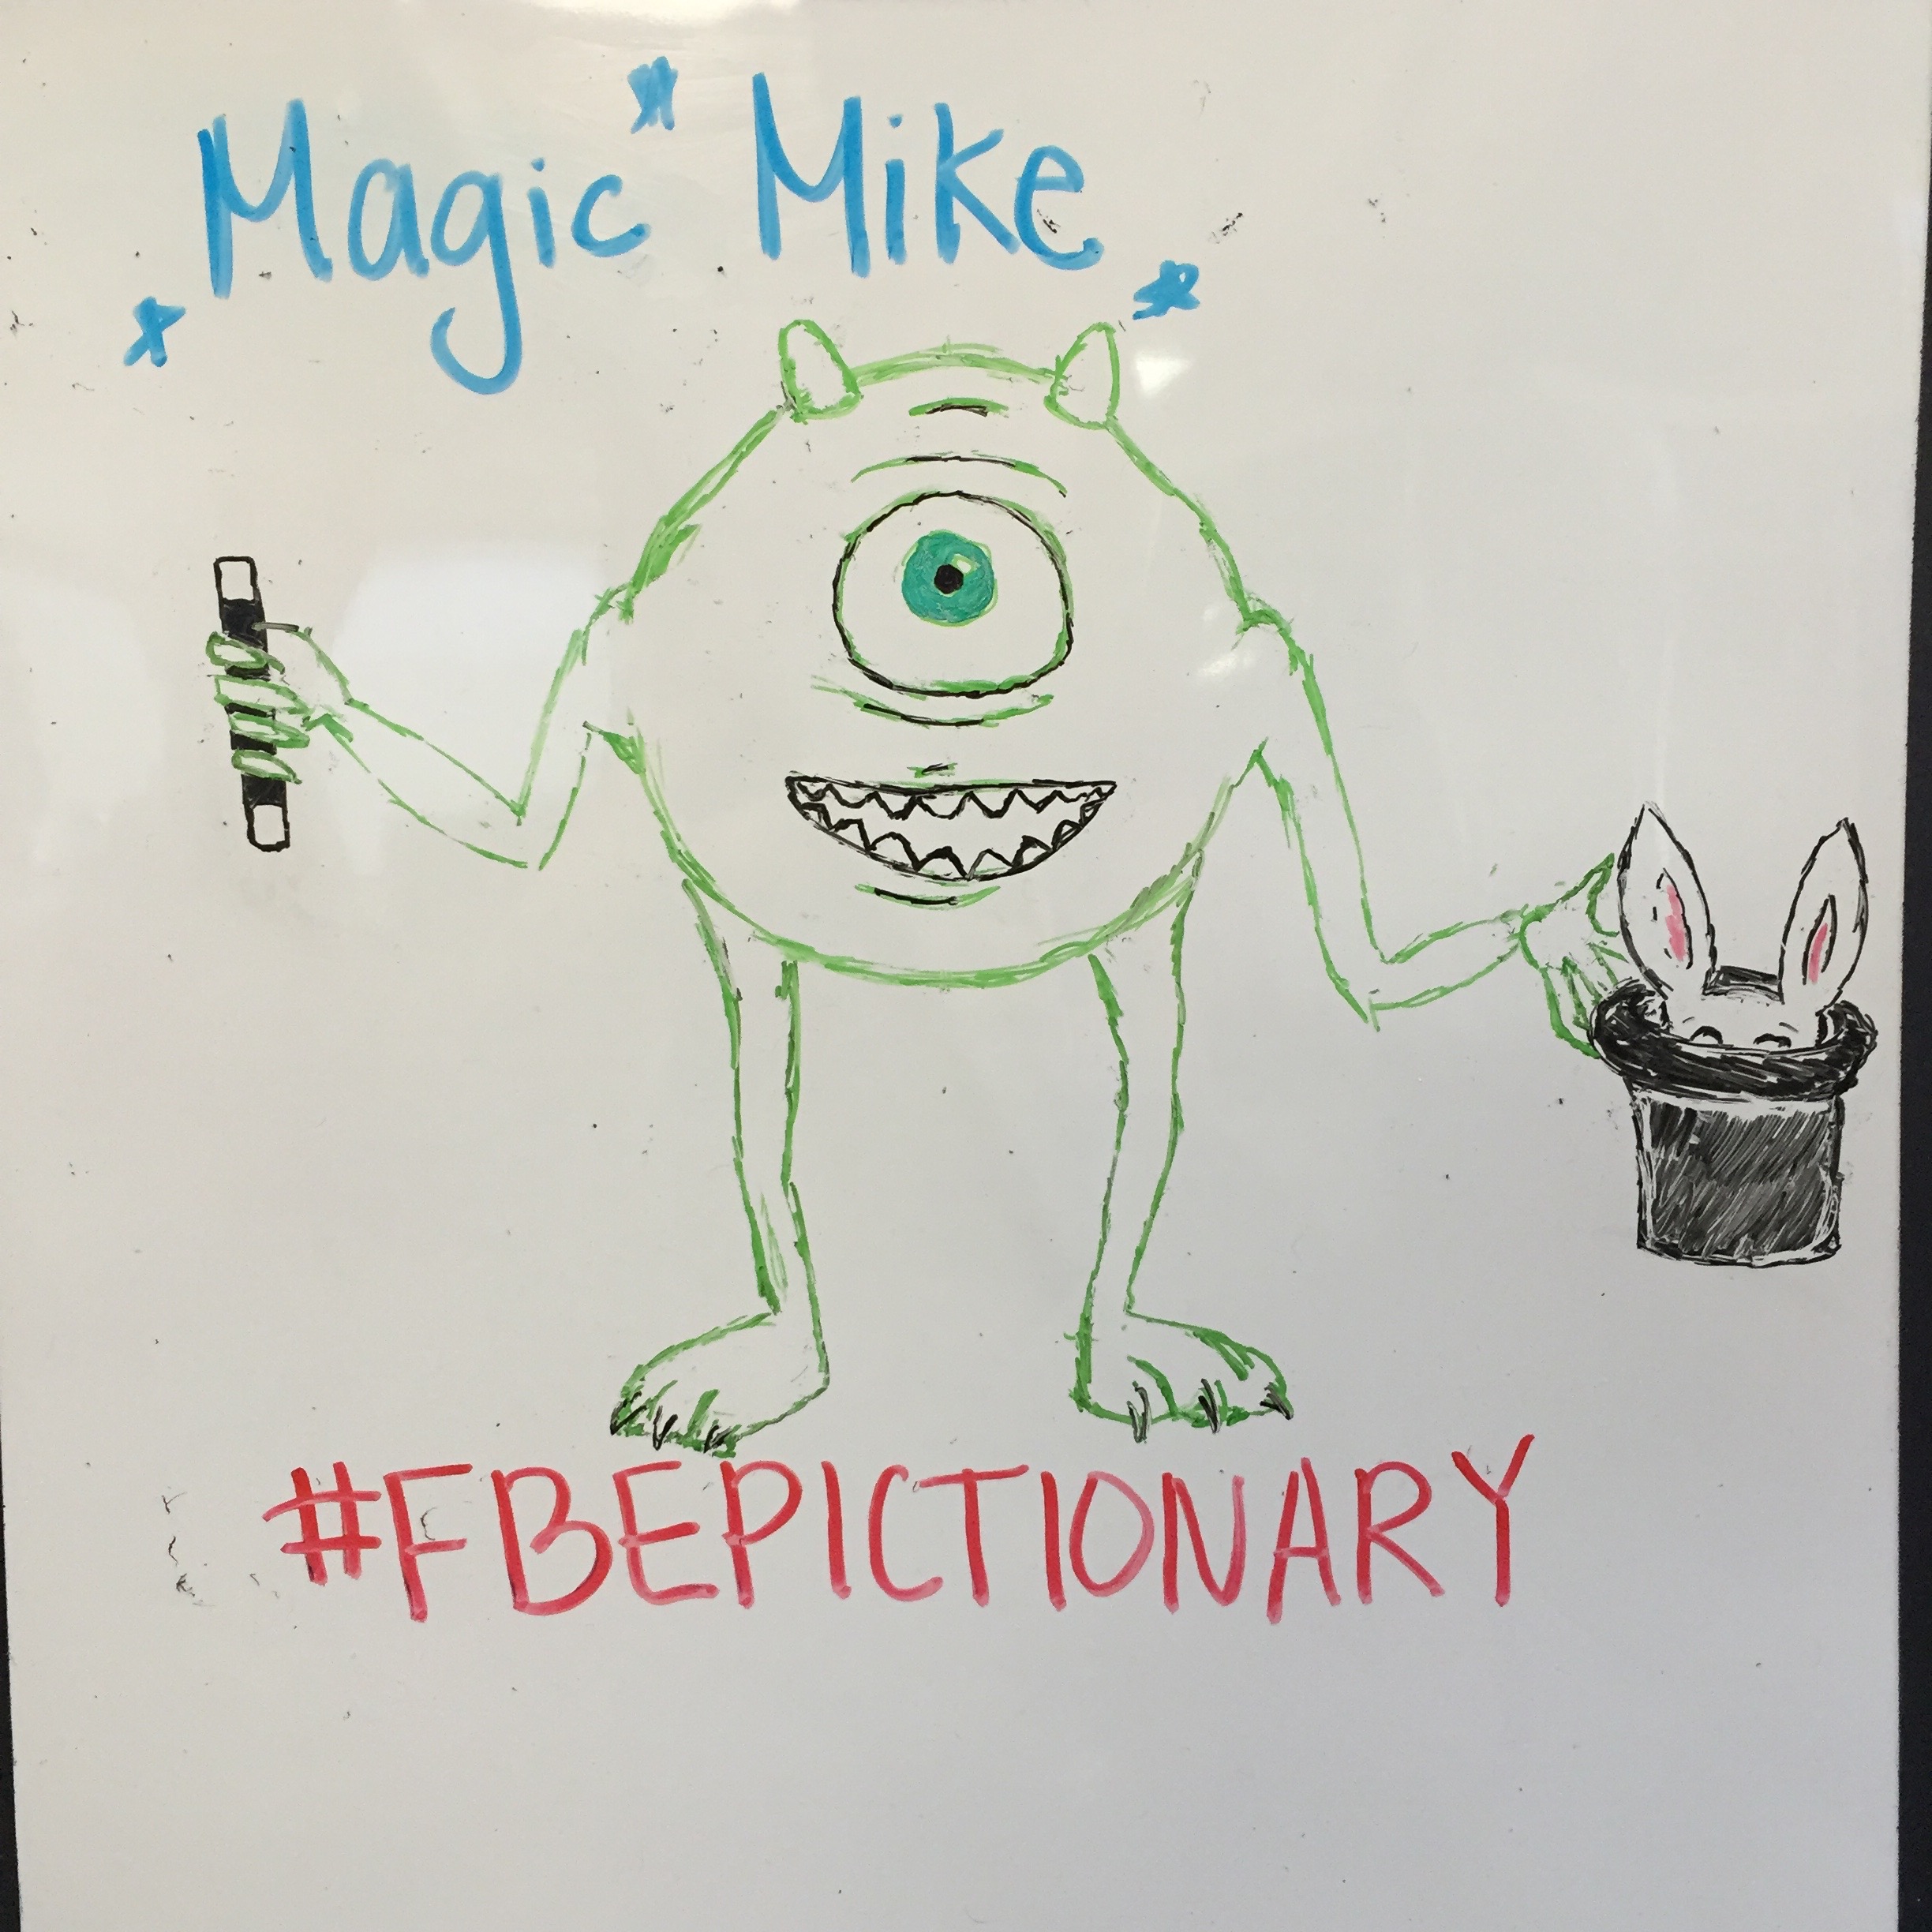 Magic Mike
#FBEPICTIONARY